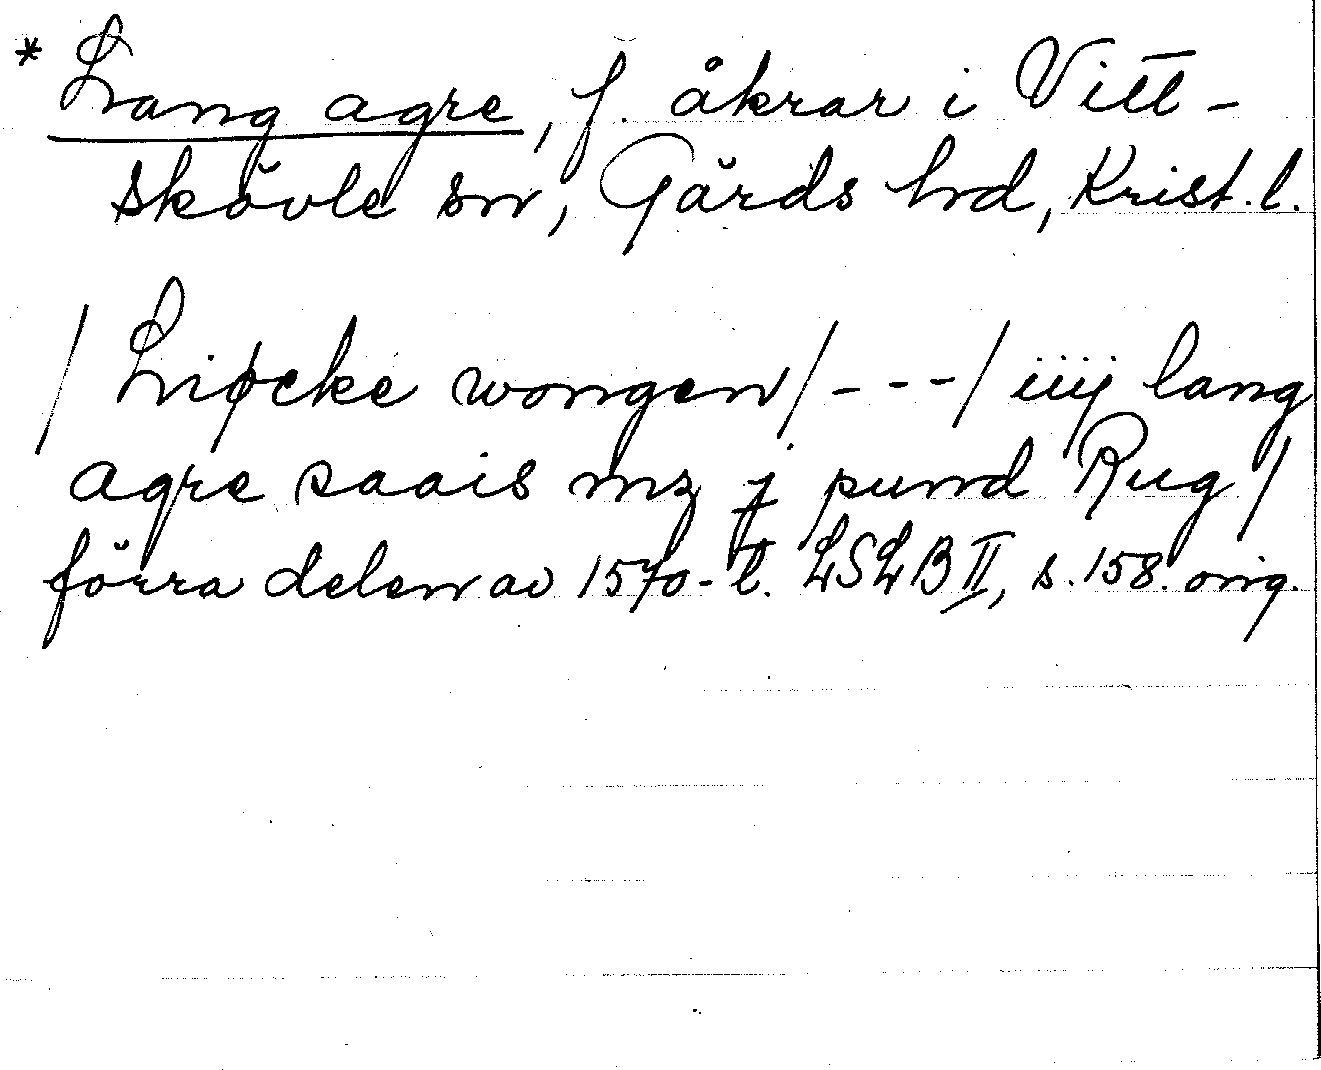 * Lang agre, f. åkrar i Vitt-
skövle sn, Gärds hd, Krist. l.
/ Liøcke wongen/ - - - / iiij lang
agre saais mz j pund Rug /
förra delen av 1570-t. LSLB II, s. 158. orig.